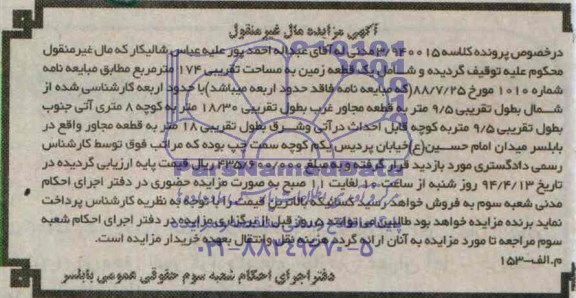 آگهی مزایده مال غیر منقول
درخصوص پرونده کلاسه ۳/۹۴۰۰۱۵ مدنی له آقای عبداله احمد پور علیه عباس شالیکار که مال غیر منقول
محکوم علیه توقیف گردیده و شامل یک قطعه زمین به مساحت تقریبی ۱۷۴ مترمربع مطابق مبایعه نامه
شماره ۱۰۱۰ مورخ ۸۸/۷/۲۵ (که مبایعه نامه فاقد حدود اربعه میباشد) با حدود اربعه کارشناسی شده از
شمال بطول تقریبی ۹/۵ متر به قطعه مجاور غرب بطول تقریبی ۱۸/۳۰ متر به کوچه ۸ متری آتی جنوب
بطول تقریبی ۹/۵ متر به کوچه قابل احداث در آتی وشرق بطول تقریبی ۱۸ متر به قطعه مجاور واقع در
بابلسر میدان امام حسین(ع) خیابان پردیس یکم کوچه سمت چپ بوده که مراتب فوق توسط کارشناس
رسمی دادگستری مورد بازدید قرار گرفته و به مبلغ ۴۳۵/۶۰۰/۰۰۰ ریال قیمت پایه ارزیابی گردیده در
تاریخ ۹۴/۴/۱۳ روز شنبه از ساعت ۱۰ لغایت ۱۱ صبح به صورت مزایده حضوری در دفتر اجرای احکام
مدنی شعبه سوم به فروش خواهد رسید کسانیکه بالاترین قیمت را با توجه به نظریه کارشناس پرداخت
نماید برنده مزایده خواهد بود طالبین می توانند ۵ روز قبل از برگزاری مزایده در دفتر اجرای احکام شعبه
سوم مراجعه تا مورد مزایده به آنان ارائه گردد هزینه نقل وانتقال بعهده خریدار مزایده است.
م.الف-۱۵۳
دفتر اجرای احکام شعبه سوم حقوقی عمومی بابلسر
ParsNamadData
۰۲۱-۸۸۳۴۹۶۷۰-۵